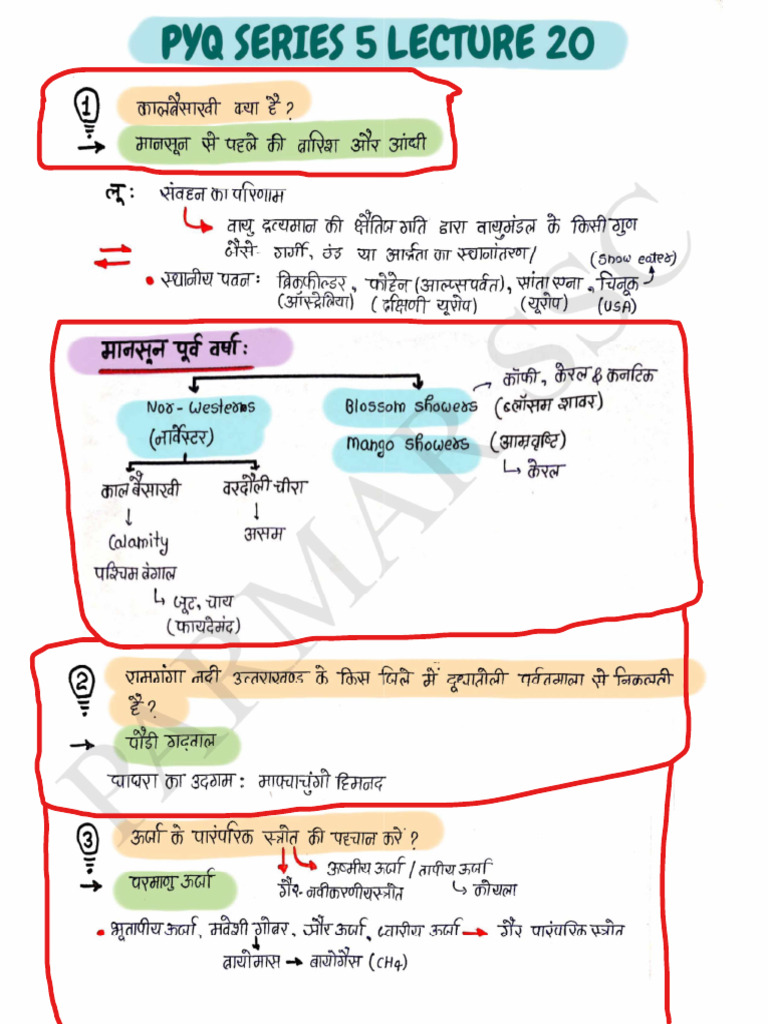 PYQ SERIES 5 LECTURE 20
1 कालबैसाखी क्या है?
→ मानसून से पहले की बारिश और आंधी
लू: संवहन का परिणाम
वायु द्रव्यमान की क्षैतिज गति द्वारा वायुमंडल के किसी गुण
जैसे गर्मी, ठंड या आर्द्रता का स्थानांतरण/
(Snow eater)
• स्थानीय पवन: ब्रिकफील्डर, फोहेन (आल्पसपर्वत), सांता एना, चिनूक
(ऑस्ट्रेलिया) (दक्षिणी यूरोप) (यूरोप) (USA)
मानसून पूर्व वर्षा:
कॉफी, केरल & कर्नाटक
Nor-Westerns Blossom showers (ब्लॉसम शावर)
(नार्वेस्टर) Mango showers (आम्रवृष्टि)
केरल
काल बैसाखी बरदौली चीरा
↓ ↓
Calamity असम
पश्चिम बंगाल
जूट, चाय
(फायदेमंद)
2 रामगंगा नदी उत्तराखण्ड के किस जिले में दूधातोली पर्वतमाला से निकलती
है?
→ पौडी गढ़वाल
घाघरा का उदगम: मापचाचुंगो हिमनद
3 ऊर्जा के पारंपरिक स्त्रोत की पहचान करें?
ऊष्मीय ऊर्जा / तापीय ऊर्जा
→ परमाणु ऊर्जा गैर-नवीकरणीयस्त्रोत कोयला
• भूतापीय ऊर्जा, मवेशी गोबर, सौर ऊर्जा, ज्वारीय ऊर्जा → गैर पारंपरिक स्त्रोत
बायोमास → बायोगैस (CH4)
PARMAR SSC